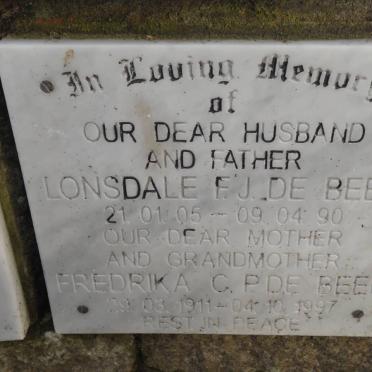 In Loving Memory
of
OUR DEAR HUSBAND
AND FATHER
LONSDALE F.J. DE BEE
21.01.05 - 09.04.90
OUR DEAR MOTHER
AND GRANDMOTHER
FREDRIKA C.P. DE BEE
29.03.1911 - 04.10.1997
REST IN PEACE